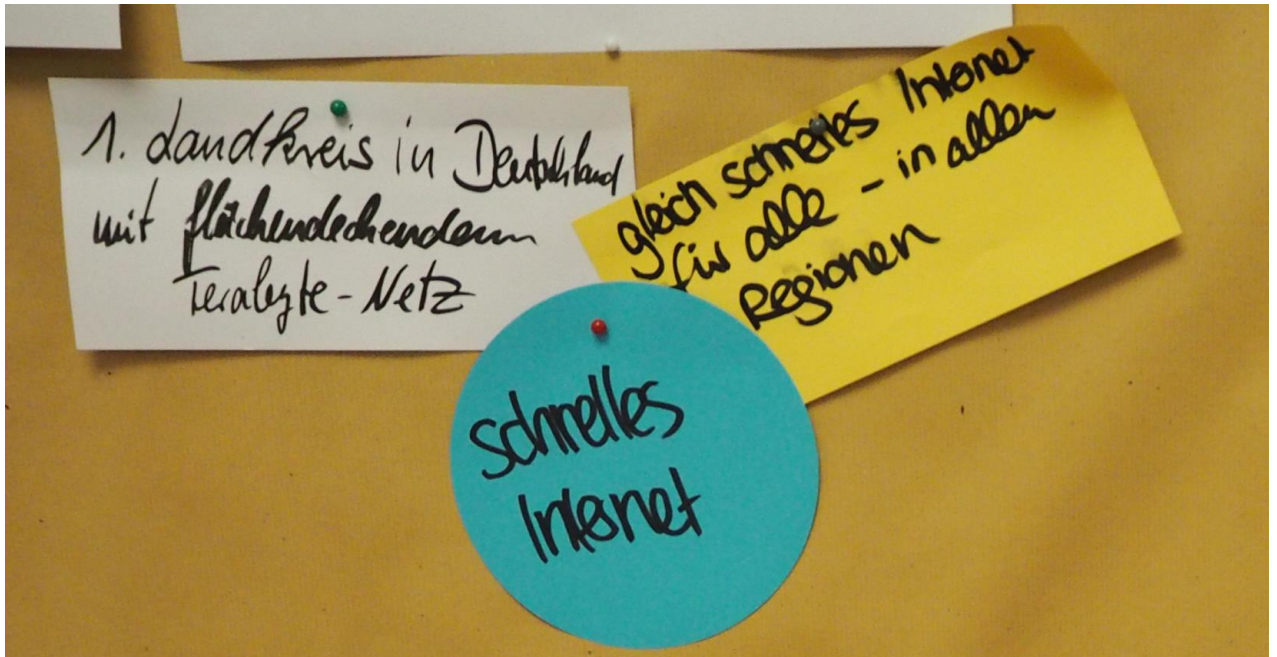 1. Landkreis in Deutschland
mit flächendeckendem
Terabyte-Netz
gleich schnelles Internet
für alle - in allen
Regionen
schnelles
Internet